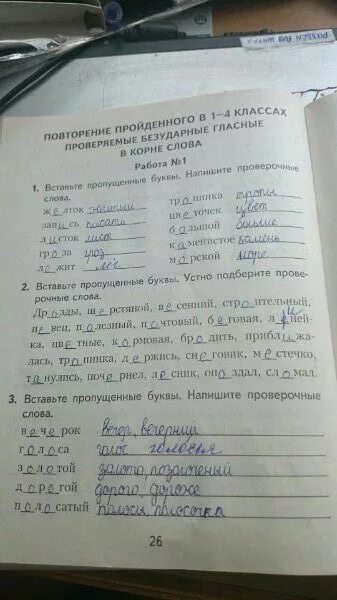 РАЗДЕЛ
ПОВТОРЕНИЕ ПРОЙДЕННОГО В 1—4 КЛАССАХ
ПРОВЕРЯЕМЫЕ БЕЗУДАРНЫЕ ГЛАСНЫЕ
В КОРНЕ СЛОВА
Работа №1
1. Вставьте пропущенные буквы. Напишите проверочные
слова.
желток жёлтый
запись писать
листок лист
гроза гроз
лежит лёг
тропинка тропы
цветочек цвет
большой больше
каменистое камень
морской море
2. Вставьте пропущенные буквы. Устно подберите прове-
рочные слова.
Дрозды, шерстяной, весенний, строительный,
певец, полезный, почтовый, беговая, линей-
ка, цветные, кормовая, бродить, приближа-
лась, тропинка, держись, снеговик, местечко,
тянулись, почернел, лесник, опоздал, сломал.
3. Вставьте пропущенные буквы. Напишите проверочные
слова.
вечерок вечер, вечерний
голоса голос голосья
золотой золото, позолоченый
дорогой дорого дороже
полосатый полосы, полосочка
26